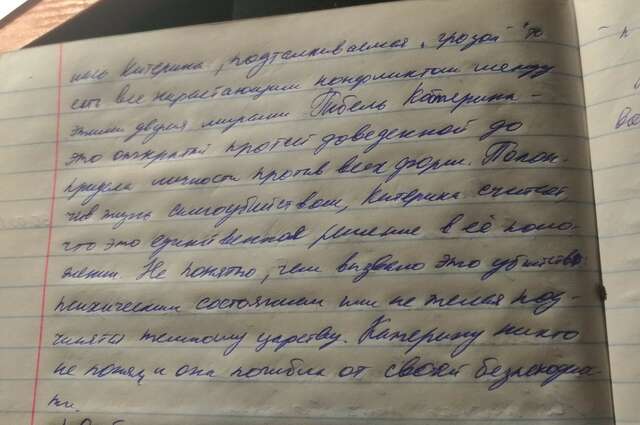 него Катерина, подталкиваемая "грозой" то
есть все нарастающим конфликтом между
этими двумя мирами Гибель Катерина -
это открытый протест доведенной до
предела личности против всех форм. Покон-
чив жизнь самоубийством, Катерина считает,
что это единственное решение в её поло-
жении. Не понятно, чем вызвано это убийство:
психическим состоянием или не желая под-
чинятся темному царству. Катерину никто
не понял и она погибла от своей безысходнос-
ти.